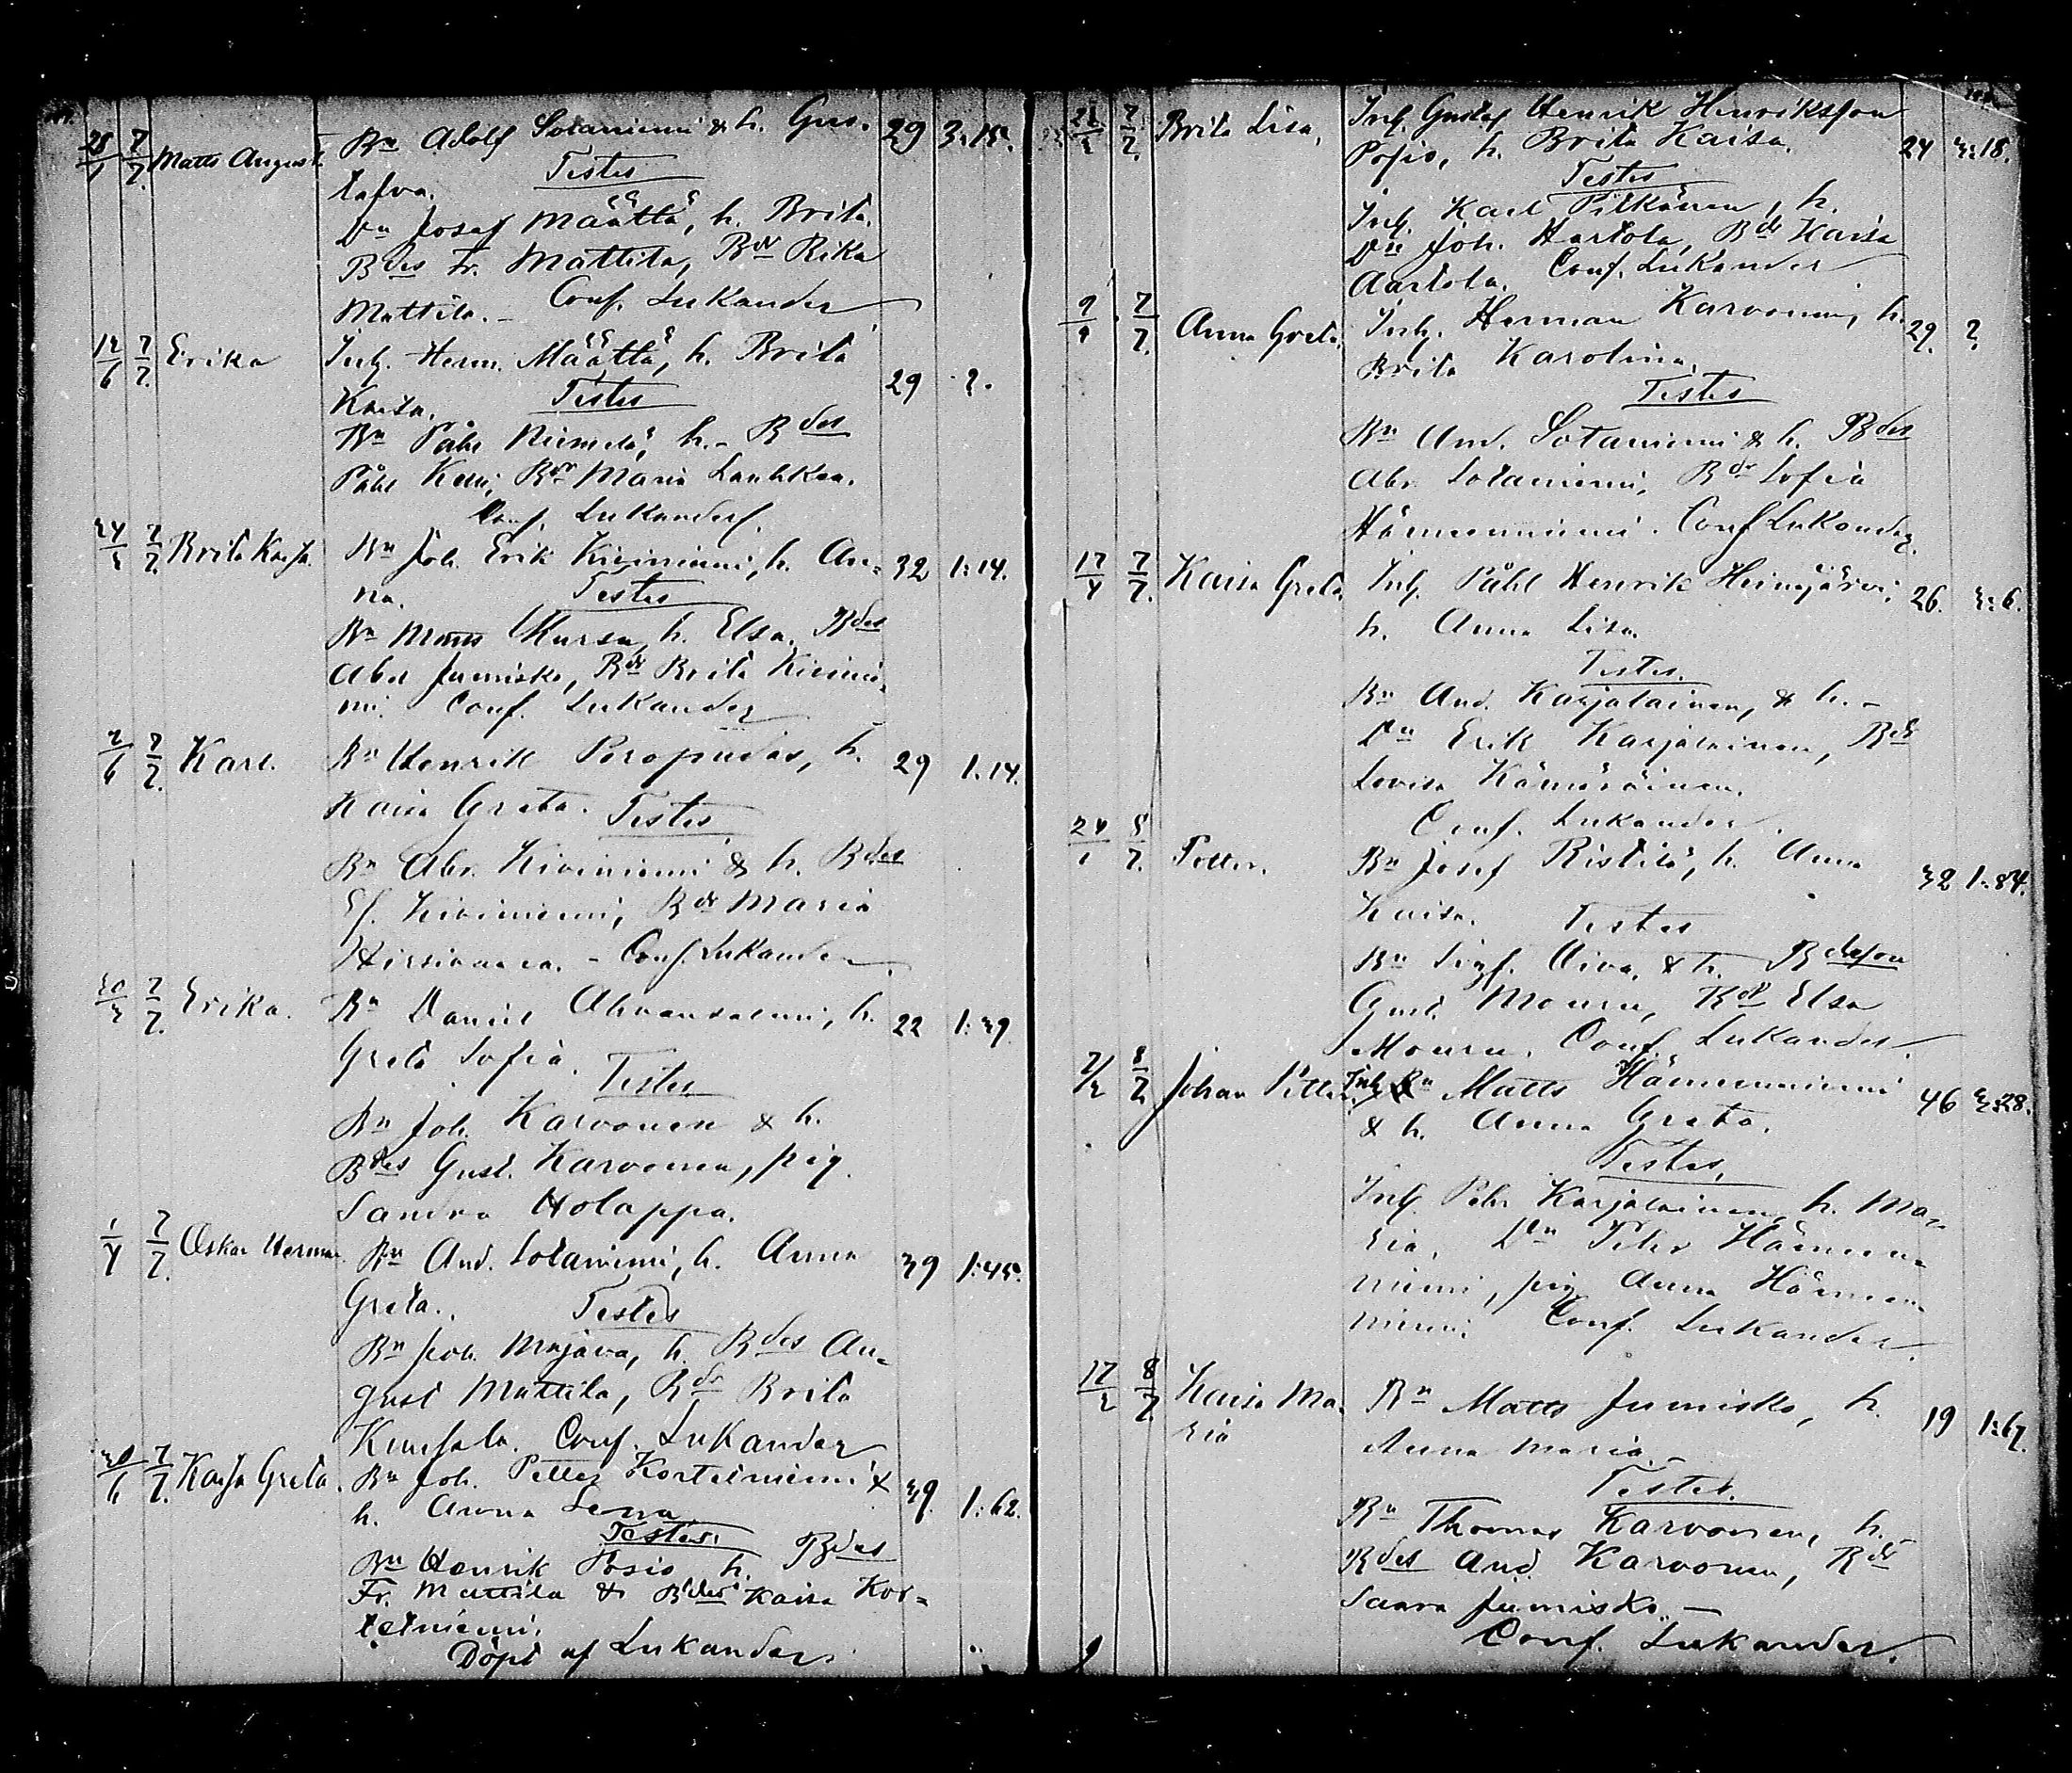 28/1 7/7 Matts August. Bn Adolf Sotaniemi & h. Gus- 29 3:15.
tafva. Testes
Dn Josef Määttä, h. Brita.
Bdes Fr. Mattila, Bdr Rika
Mattila. - Conf. Lukander
12/6 7/7 Erika Inh. Herm. Määttä, h. Brita 29 ?.
Kaisa. Testes
Bn Påhl Niemelä, h. - Bdes
Påhl Keni, Bdr Maria Lauhkaa.
Conf. Lukander.
24/5 7/7 Brita Kajsa. Bn Joh. Erik Kiviniemi, h. An- 32 1:14.
na. Testes
Bn Matts Kursu, h. Elsa. Bdes
Abel Jumisko, Bdr Brita Kivinie-
mi. Conf. Lukander
2/6 7/7 Karl. Bn Henrik Poropudas, h. 29 1.14.
Kaisa Greta. Testes
Bn Abr. Kiviniemi & h. Bdes
Ef. Kiviniemi, Bdr Maria
Hirsivaara. - Conf. Lukander
30/3 7/7 Erika. Bn Daniel Ahvensalmi, h. 22 1:39.
Greta Sofia. Testes
Bn Joh. Karvonen & h.
Bdes Gust. Karvonen, pig.
Sandra Holappa.
1/4 7/7 Oskar Herman. Bn And. Sotaniemi, h. Anna 39 1:45.
Greta. Testes
Bn Joh. Majava, h. Bdes Au-
gust Mattila, Bdr Brita
Kumsala. Conf. Lukander
30/6 7/7 Kajsa Greta. Bn Joh. Petter Kortelniemi & 39. 1:62.
h. Anna Lena
Testes.
Bn Henrik Posio h. Bdes
Fr. Mattila & Bder Kaisa Kor-
telniemi.
Döpt af Lukander.
7/7 Brita Lisa. Inh. Gustaf Henrik Henriksson
Posio, h. Brita Kaisa. 24 3:18.
Testes
Inh. Karl Pitkänen, h.
Dn Joh. Hartola, Bdr Kaisa
Aartola. Conf. Lukander
9/4 7/7 Anna Greta. Inh. Herman Karvonen, h. 29. ?
Brita Karolina.
Testes
Bn And. Sotaniemi & h. Bdes
Abr. Sotaniemi, Bdr Sofia
Hämeenniemi. Conf. Lukander
17/4 7/7 Kaisa Greta. Inh. Påhl Henrik Heinojärvi, 26. 3:6.
h. Anna Lisa.
Testes.
Bn And. Karjalainen, & h. -
Dn Erik Karjalainen, Bdr
Lovisa Kämäräinen.
Conf. Lukander.
24/1 8/7 Petter. Bn Josef Ristilä, h. Anna 32 1:84.
Kaisa. Testes
Bn Sigf. Oiva, & h. Bdeson
Gust. Mouru, Bdr Elsa
Mouru. Conf. Lukander.
7/2 8/7 Johan Petter. Inh. Matts Hämeenniemi 46 3:28.
& h. Anna Greta.
Testes.
Inh. Pehr Karjalainen h. Ma-
ria. Dn Peter Hämeen-
niemi, pig Anna Hämeen-
niemi. Conf. Lukander.
17/2 8/7 Kaisa Ma- Bn Matts Jumisko, h. 19 1:67.
ria Anna Maria. -
Testes.
Bn Thomas Karvonen, h. -
Bdes And. Karvonen, Bdr
Saara Jumisko. -
Conf. Lukander.